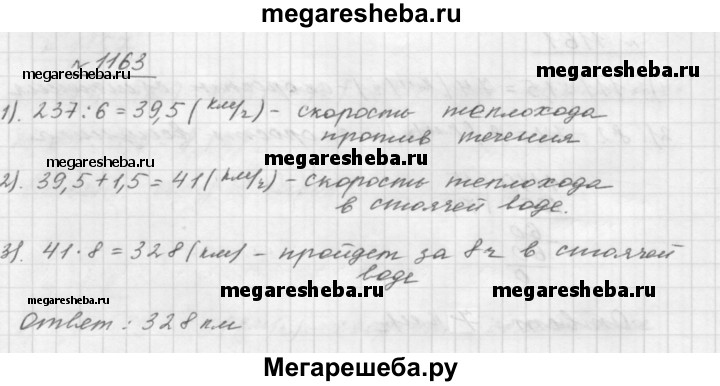 megaresheba.ru
№ 1163
megaresheba.ru
megaresheba.ru
1). 237:6 = 39,5 (км/ч) - скорость теплохода
против течения
megaresheba.ru
megaresheba.ru
2). 39,5+1,5 = 41 (км/ч) - скорость теплохода
в стоячей воде.
3). 41·8 = 328 (км) - пройдет за 8ч в стоячей
воде
megaresheba.ru
megaresheba.ru
megaresheba.ru
Ответ: 328 км
Мегарешеба.ру